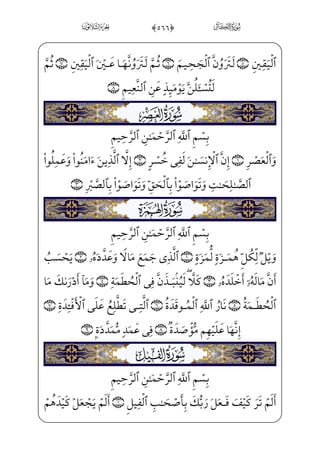 سُورَةُ التَّكَاثُرِ ﴿٥٦٦﴾ الجُزْءُ الثَّلَاثُونَ
ٱلْيَقِينِ ۝٥ لَتَرَوُنَّ ٱلْجَحِيمَ ۝٦ ثُمَّ لَتَرَوُنَّهَا عَيْنَ ٱلْيَقِينِ ۝٧ ثُمَّ
لَتُسْـَٔلُنَّ يَوْمَئِذٍ عَنِ ٱلنَّعِيمِ ۝٨
سُورَةُ العَصْرِ
بِسْمِ ٱللَّهِ ٱلرَّحْمَـٰنِ ٱلرَّحِيمِ
وَٱلْعَصْرِ ۝١ إِنَّ ٱلْإِنسَـٰنَ لَفِى خُسْرٍ ۝٢ إِلَّا ٱلَّذِينَ ءَامَنُوا۟ وَعَمِلُوا۟
ٱلصَّـٰلِحَـٰتِ وَتَوَاصَوْا۟ بِٱلْحَقِّ وَتَوَاصَوْا۟ بِٱلصَّبْرِ ۝٣
سُورَةُ الهُمَزَةِ
بِسْمِ ٱللَّهِ ٱلرَّحْمَـٰنِ ٱلرَّحِيمِ
وَيْلٌ لِّكُلِّ هُمَزَةٍ لُّمَزَةٍ ۝١ ٱلَّذِى جَمَعَ مَالًا وَعَدَّدَهُۥ ۝٢ يَحْسَبُ
أَنَّ مَالَهُۥٓ أَخْلَدَهُۥ ۝٣ كَلَّا ۖ لَيُنۢبَذَنَّ فِى ٱلْحُطَمَةِ ۝٤ وَمَآ أَدْرَىٰكَ مَا
ٱلْحُطَمَةُ ۝٥ نَارُ ٱللَّهِ ٱلْمُوقَدَةُ ۝٦ ٱلَّتِى تَطَّلِعُ عَلَى ٱلْأَفْـِٔدَةِ ۝٧
إِنَّهَا عَلَيْهِم مُّؤْصَدَةٌ ۝٨ فِى عَمَدٍ مُّمَدَّدَةٍۭ ۝٩
سُورَةُ الفِيلِ
بِسْمِ ٱللَّهِ ٱلرَّحْمَـٰنِ ٱلرَّحِيمِ
أَلَمْ تَرَ كَيْفَ فَعَلَ رَبُّكَ بِأَصْحَـٰبِ ٱلْفِيلِ ۝١ أَلَمْ يَجْعَلْ كَيْدَهُمْ